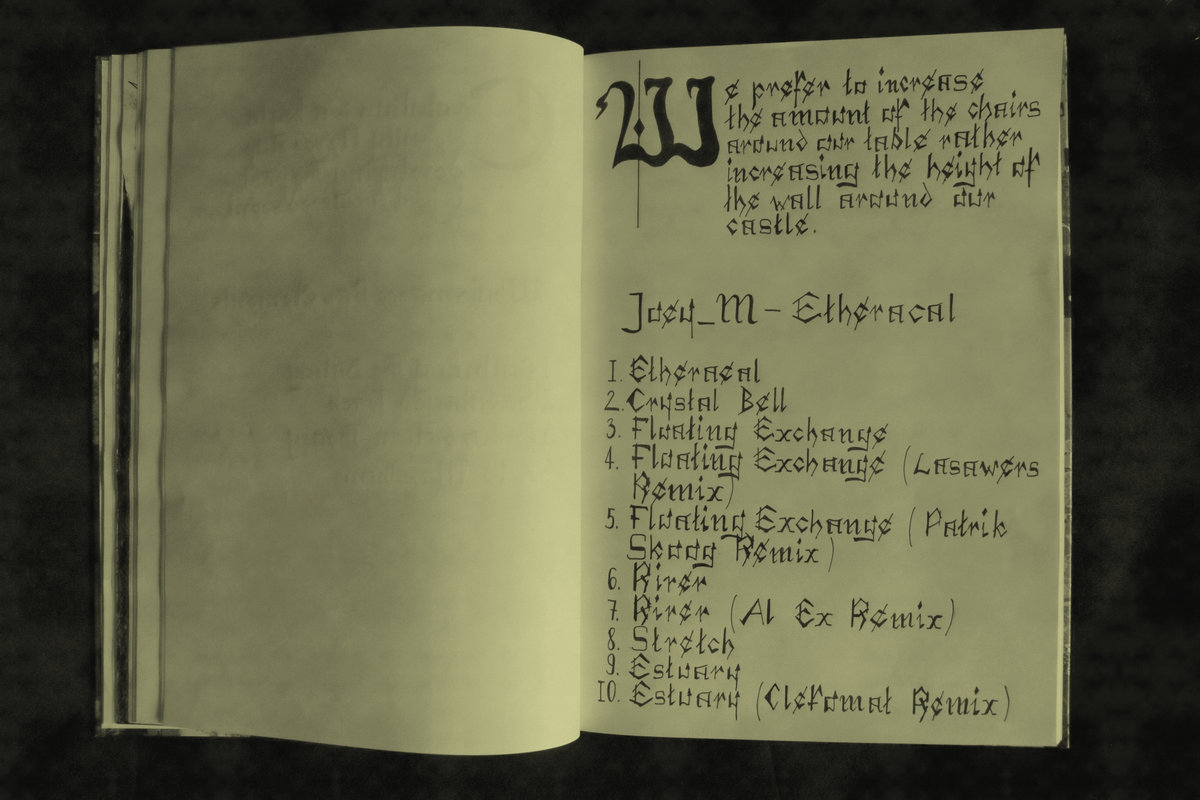 We prefer to increase
the amount of the chairs
around our table rather
increasing the height of
the wall around our
castle.
Joey_M - Etheracal
1. Etheracal
2. Crystal Bell
3. Floating Exchange
4. Floating Exchange (Lasawers
Remix)
5. Floating Exchange (Patrik
Skoog Remix)
6. Rirer
7. Rirer (Al Ex Remix)
8. Stretch
9. Estuary
10. Estuary (Clefomat Remix)